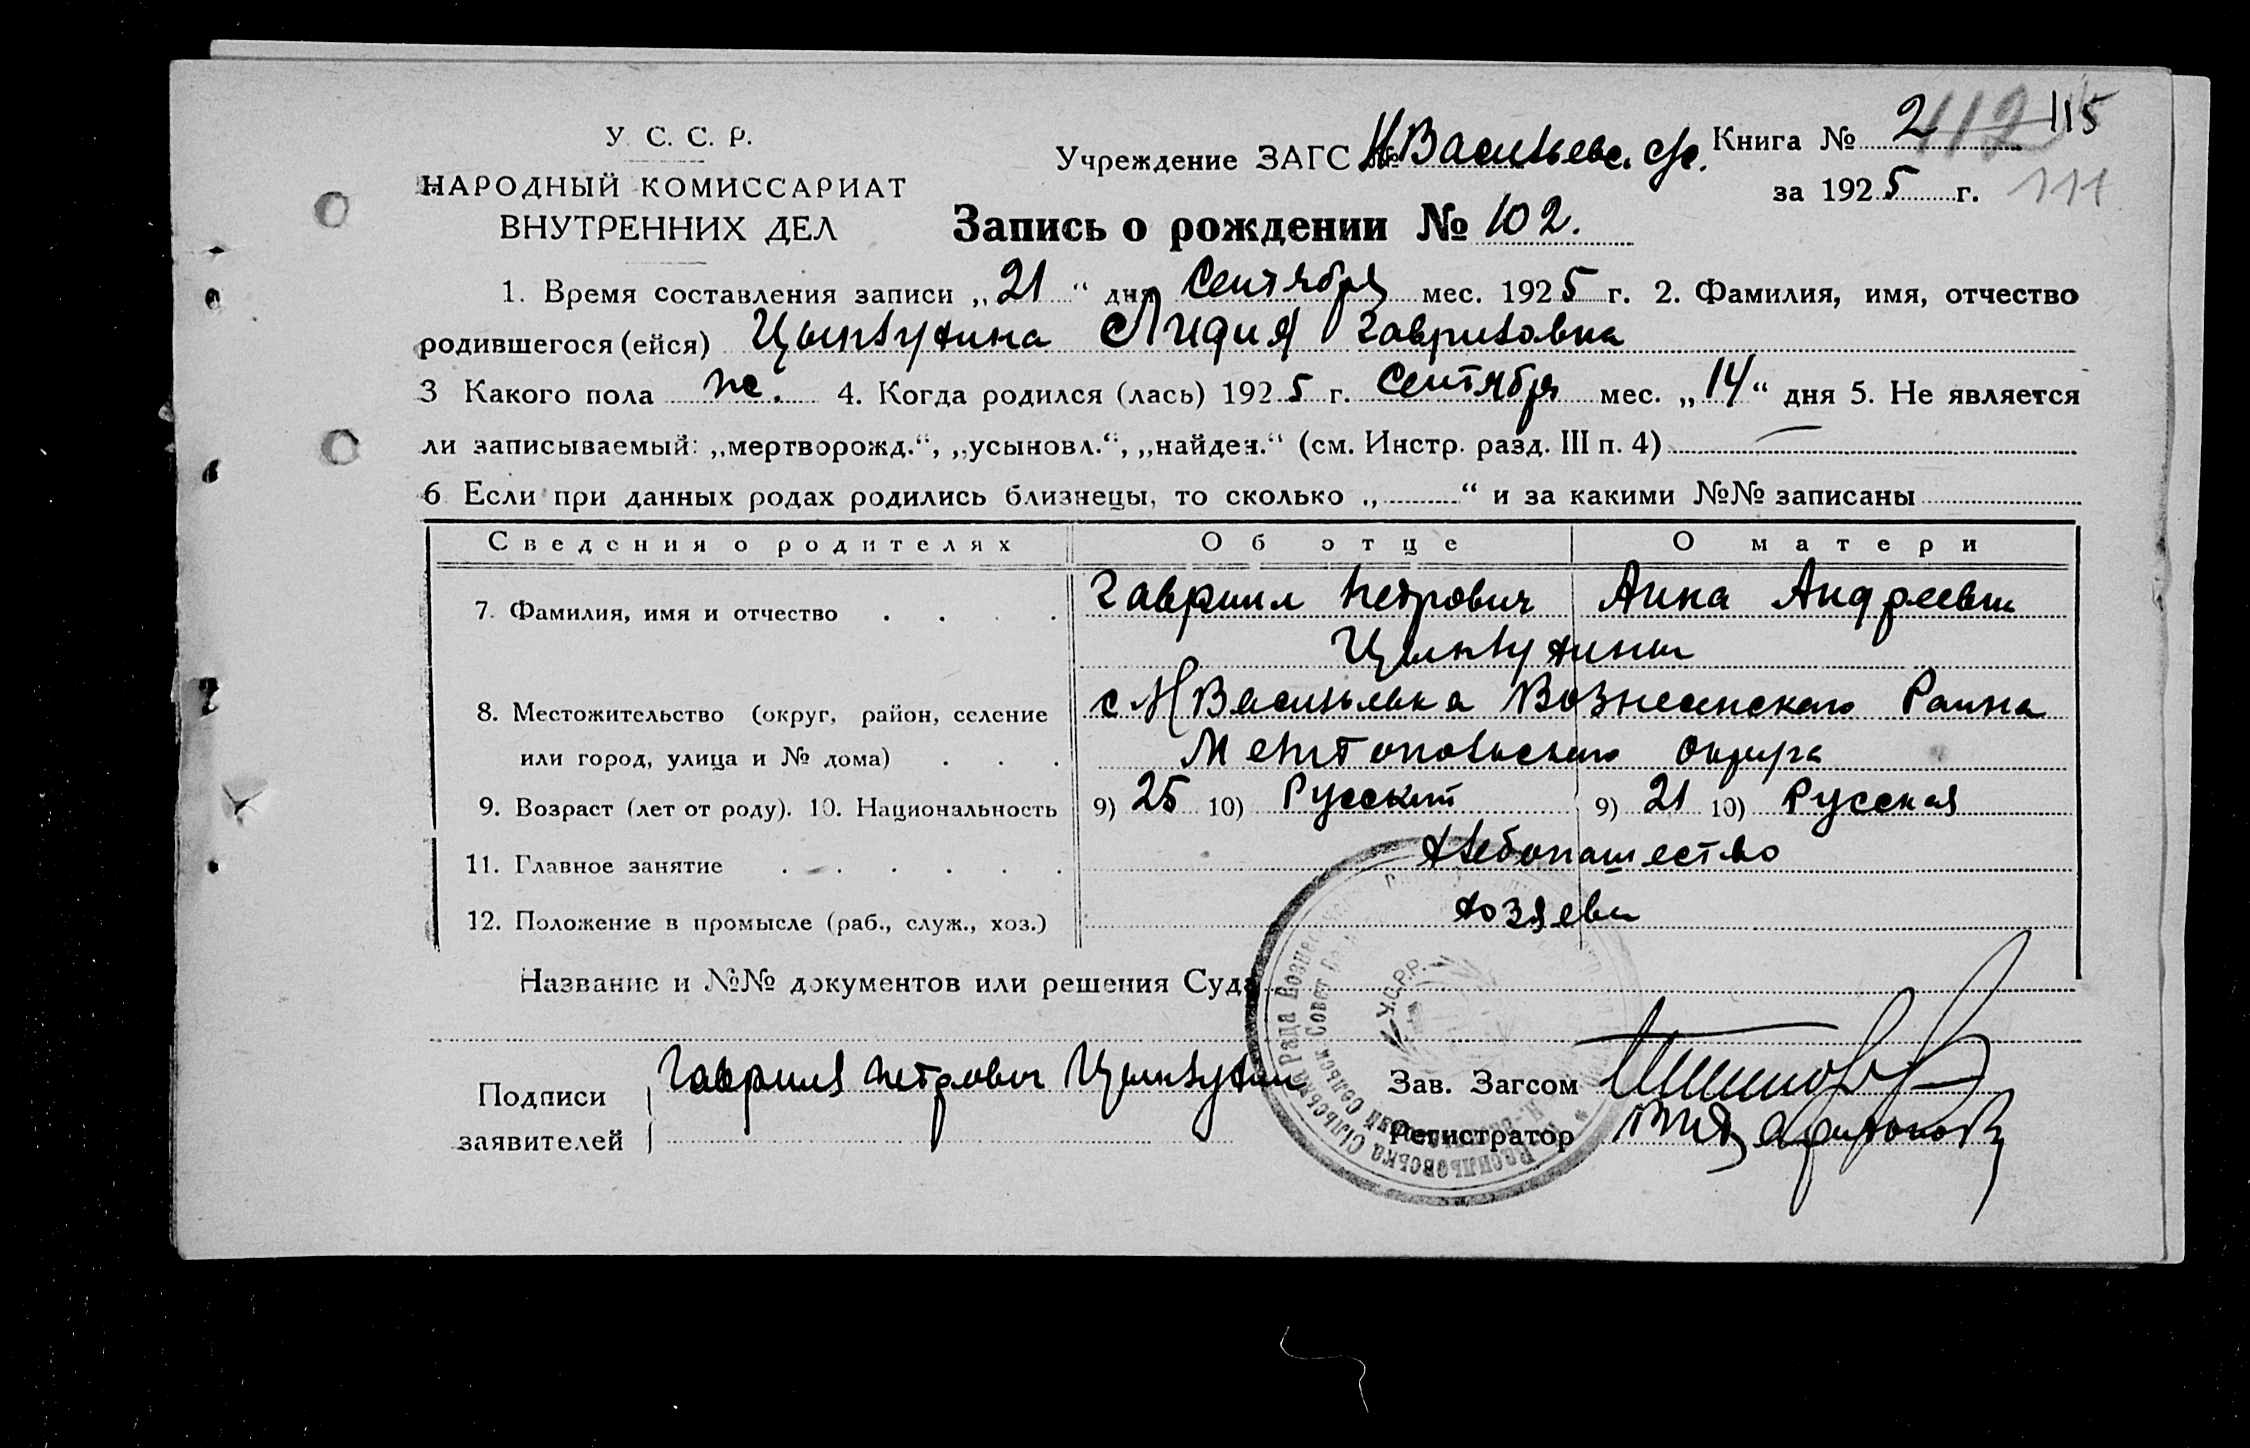 У. С. С. Р.
НАРОДНЫЙ КОМИССАРИАТ
ВНУТРЕННИХ ДЕЛ
Учреждение ЗАГС № Н Васильевс. с/с.
Книга № 2 112 115
за 1925 г. 111
Запись о рождении № 102.
1. Время составления записи „21“ дня Сентября мес. 1925 г. 2. Фамилия, имя, отчество
родившегося (ейся) Лидия Гавриловна
3 Какого пола ж. 4. Когда родился (лась) 1925 г. Сентября мес. „14“ дня 5. Не является
ли записываемый: „мертворожд.“, „усыновл.“, „найден.“ (см. Инстр. разд. III п. 4) —
6 Если при данных родах родились близнецы, то сколько „ “ и за какими №№ записаны
Сведения о родителях Об отце О матери
7. Фамилия, имя и отчество Гавриил Петрович Анна Андреевна
8. Местожительство (округ, район, селение с Н Васильевка Вознесенского Раина
или город, улица и № дома) Мелитопольского округа
9. Возраст (лет от роду). 10. Национальность 9) 25 10) Русский 9) 21 10) Русская
11. Главное занятие хлебопашество
12. Положение в промысле (раб., служ., хоз.) хозяева
Название и №№ документов или решения Суда
Подписи Гавриил Петрович
заявителей
Зав. Загсом
Регистратор
У.С.Р.Р.